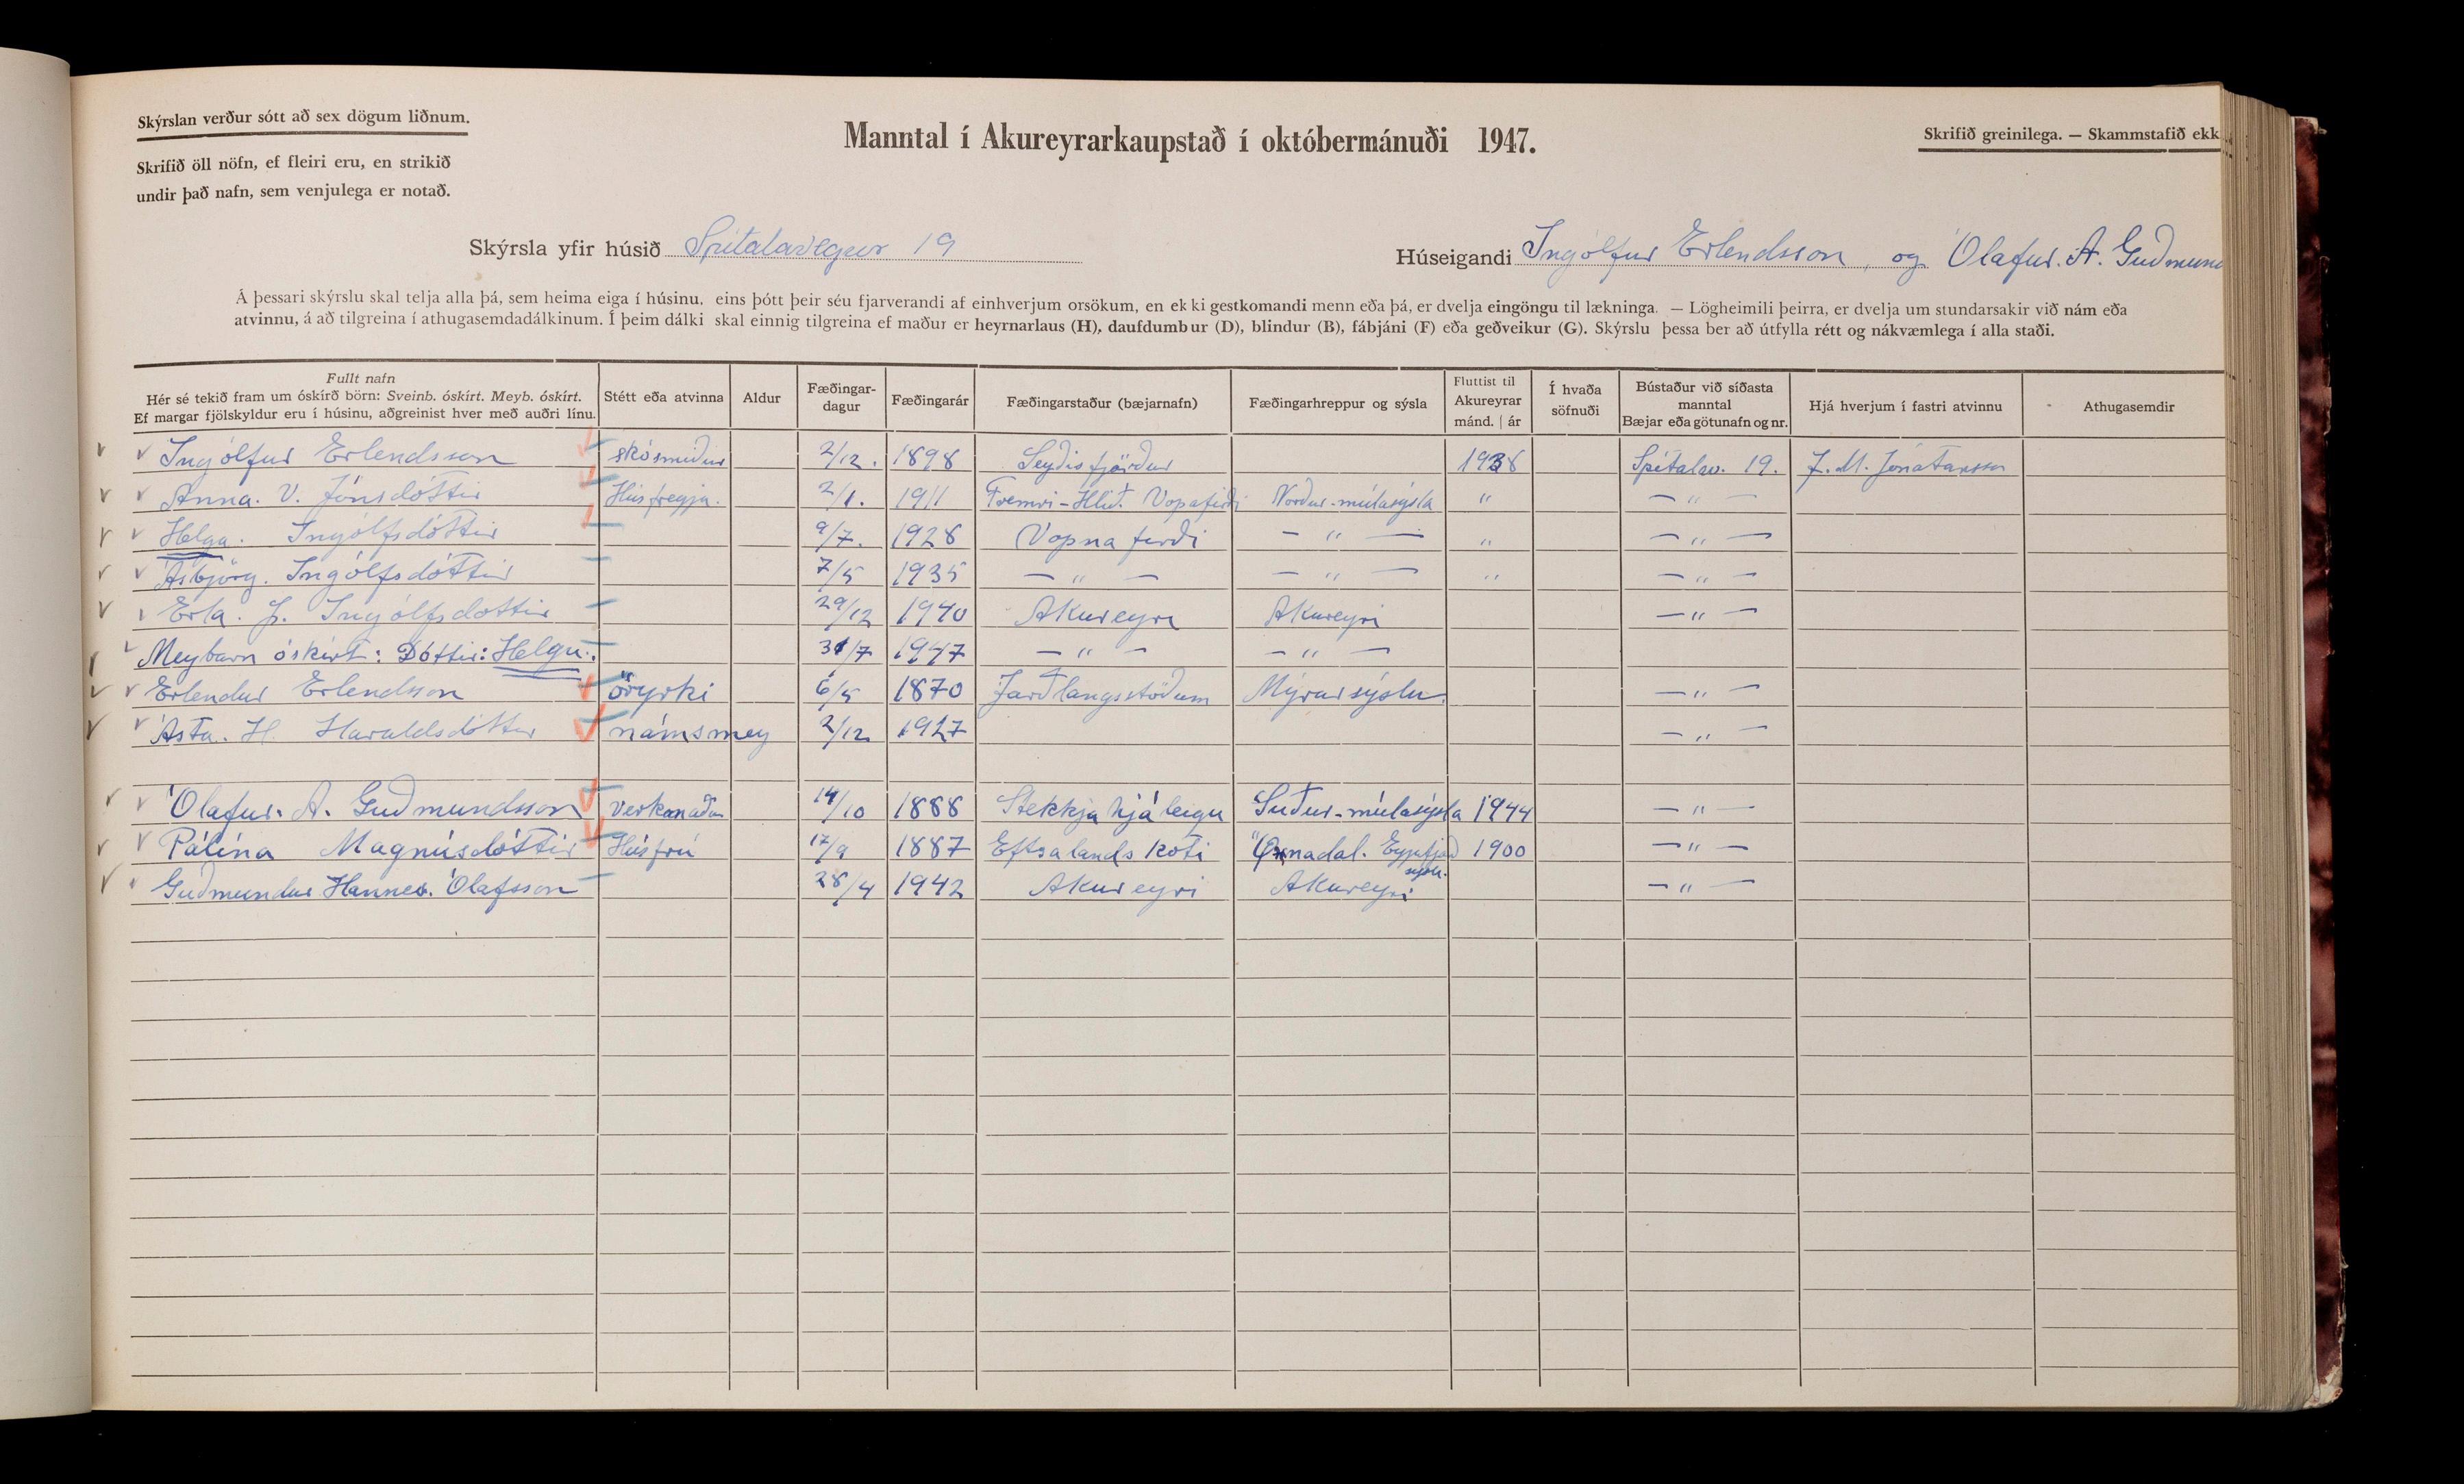 Skýrslan verður sótt að sex dögum liðnum.
Skrifið öll nöfn, ef fleiri eru, en strikið
undir það nafn, sem venjulega er notað.
Manntal í Akureyrarkaupstað í októbermánuði 1947.
Skrifið greinilega. — Skammstafið ekk
Skýrsla yfir húsið Spítalavegur 19
Húseigandi Ingólfur Erlendsson, og Ólafur. A. Guðmund
Á þessari skýrslu skal telja alla þá, sem heima eiga í húsinu, eins þótt þeir séu fjarverandi af einhverjum orsökum, en ekki gestkomandi menn eða þá, er dvelja eingöngu til lækninga. — Lögheimili þeirra, er dvelja um stundarsakir við nám eða
atvinnu, á að tilgreina í athugasemdadálkinum. Í þeim dálki skal einnig tilgreina ef maður er heyrnarlaus (H), daufdumbur (D), blindur (B), fábjáni (F) eða geðveikur (G). Skýrslu þessa ber að útfylla rétt og nákvæmlega í alla staði.
Fullt nafn
Hér sé tekið fram um óskírð börn: Sveinb. óskírt. Meyb. óskírt.
Ef margar fjölskyldur eru í húsinu, aðgreinist hver með auðri línu.
Stétt eða atvinna
Aldur
Fæðingar-
dagur
Fæðingarár
Fæðingarstaður (bæjarnafn)
Fæðingarhreppur og sýsla
Fluttist til
Akureyrar
mánd. | ár
Í hvaða
söfnuði
Bústaður við síðasta
manntal
Bæjar eða götunafn og nr.
Hjá hverjum í fastri atvinnu
Athugasemdir
Ingólfur Erlendsson skósmiður 2/12. 1898 Seyðisfjörður 1938 Spítalav. 19. J. M. Jónatansson
Anna. V. Jónsdóttir Húsfreyja. 2/1. 1911 Fremri-Hlíð. Vopafirði Norður-múlasýsla " — " —
Helga. Ingólfsdóttir 9/7. 1928 Vopnafirði — " — " — " —
Ásbjörg. Ingólfsdóttir 7/5 1935 — " — — " — " — " —
Erla. J. Ingólfsdóttir 29/12 1940 Akureyri Akureyri — " —
Meybarn óskírt: Dóttir: Helgu. 31/7 1947 — " — — " —
Erlendur Erlendsson öryrki 6/5 1870 Jarðlangsstöðum Mýrarsýslu. — " —
Ásta. H. Haraldsdóttir námsmey 2/12 1927 — " —
Ólafur. A. Guðmundsson Verkamaður 14/10 1888 Stekkjahjáleigu Suður-múlasýsla 1944 — " —
Pálína Magnúsdóttir Húsfrú 17/9 1887 Eftsalandskoti Öxnadal. Eyjafjarð 1900 — " —
sýslu.
Guðmundur Hannes. Ólafsson 28/4 1942 Akureyri Akureyri — " —